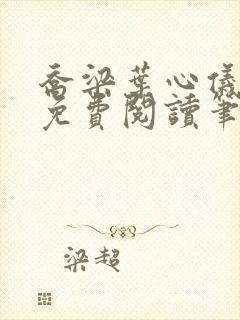 喬梁葉心儀
免費閱讀筆
梁超